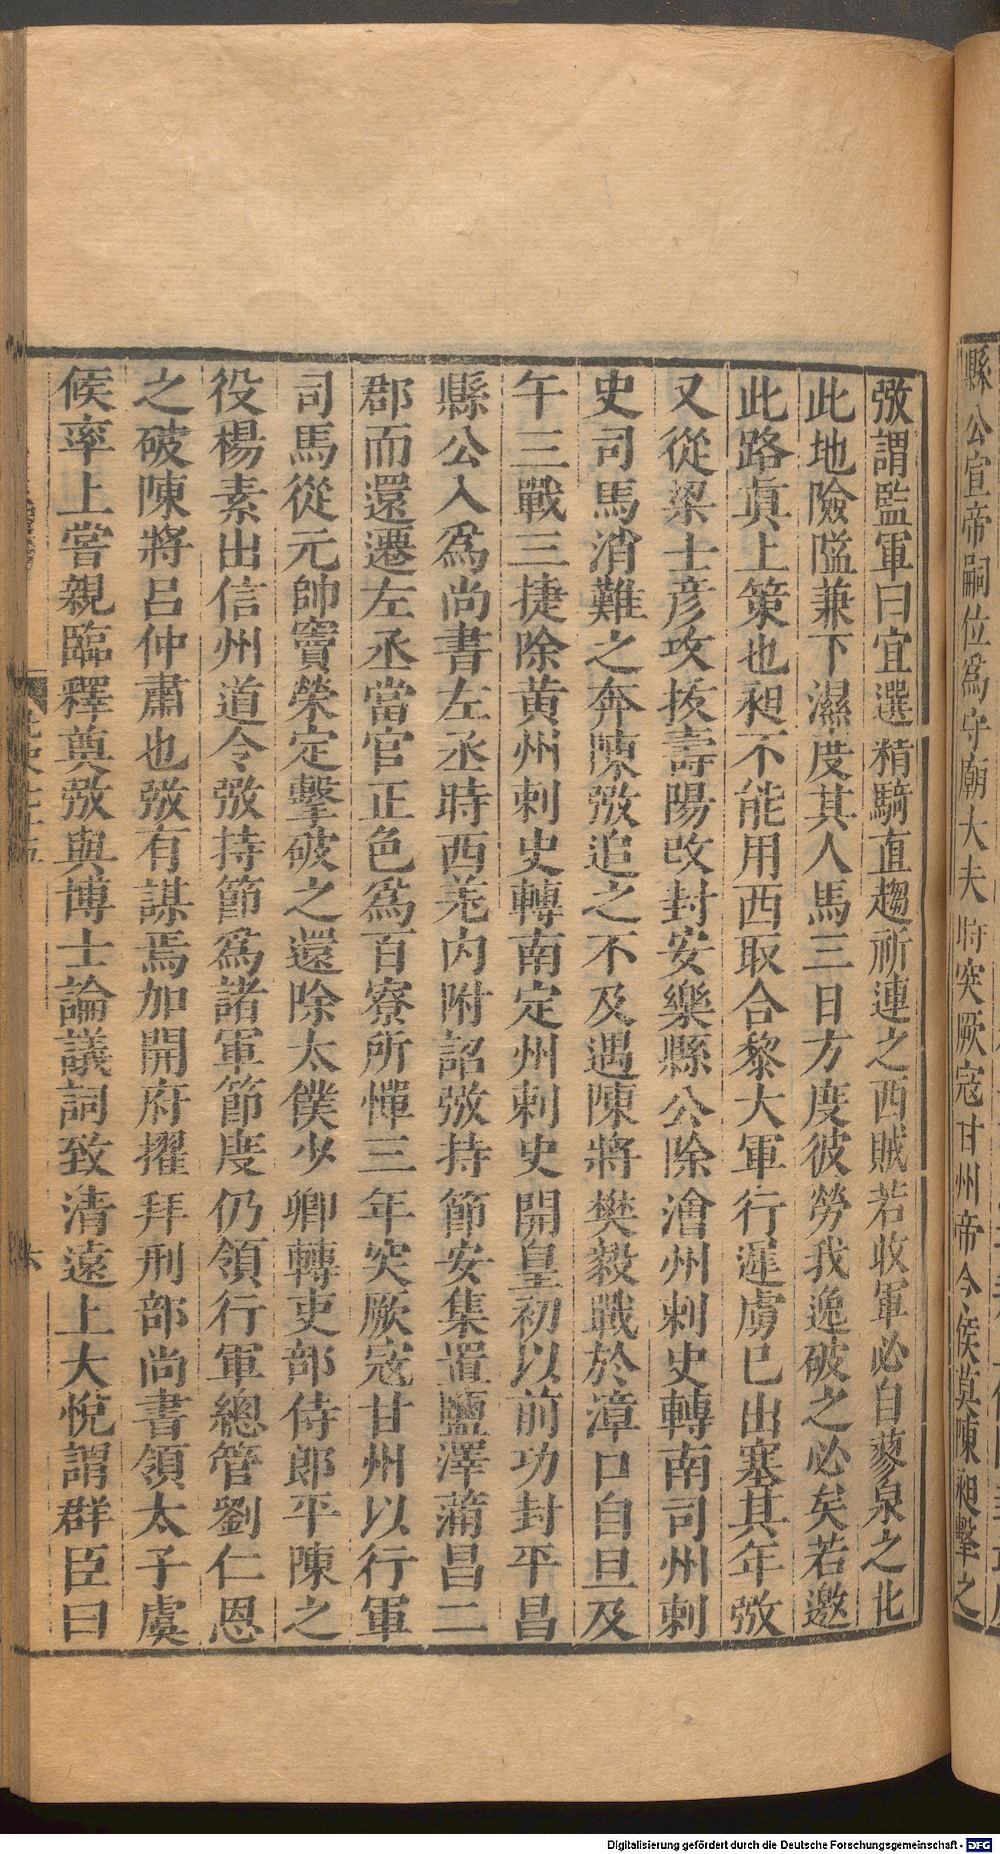 縣公宣帝嗣位爲守廟大夫時突厥寇甘州帝令侯莫陳昶擊之
弢謂監軍曰宜選精騎直趨祈連之西賊若收軍必自蓼泉之北
此地險隘兼下濕度其人馬三日方度彼勞我逸破之必矣若邀
此路眞上策也昶不能用西取合黎大軍行遲虜已出塞其年弢
又從梁士彦攻拔壽陽改封安樂縣公除澮州刺史轉南司州刺
史司馬消難之奔陳弢追之不及遇陳將樊毅戰於漳口自旦及
午三戰三捷除黄州刺史轉南定州刺史開皇初以前功封平昌
縣公入爲尚書左丞時西羌内附詔弢持節安集置鹽澤蒲昌二
郡而還遷左丞當官正色爲百寮所憚三年突厥寇甘州以行軍
司馬從元帥竇榮定擊破之還除太僕少卿轉吏部侍郎平陳之
役楊素出信州道令弢持節爲諸軍節度仍領行軍總管劉仁恩
之破陳將吕仲肅也弢有謀焉加開府擢拜刑部尚書領太子虞
候率上嘗親臨釋奠弢與博士論議詞致清遠上大悅謂群臣曰
Digitalisierung gefördert durch die Deutsche Forschungsgemeinschaft - DFG